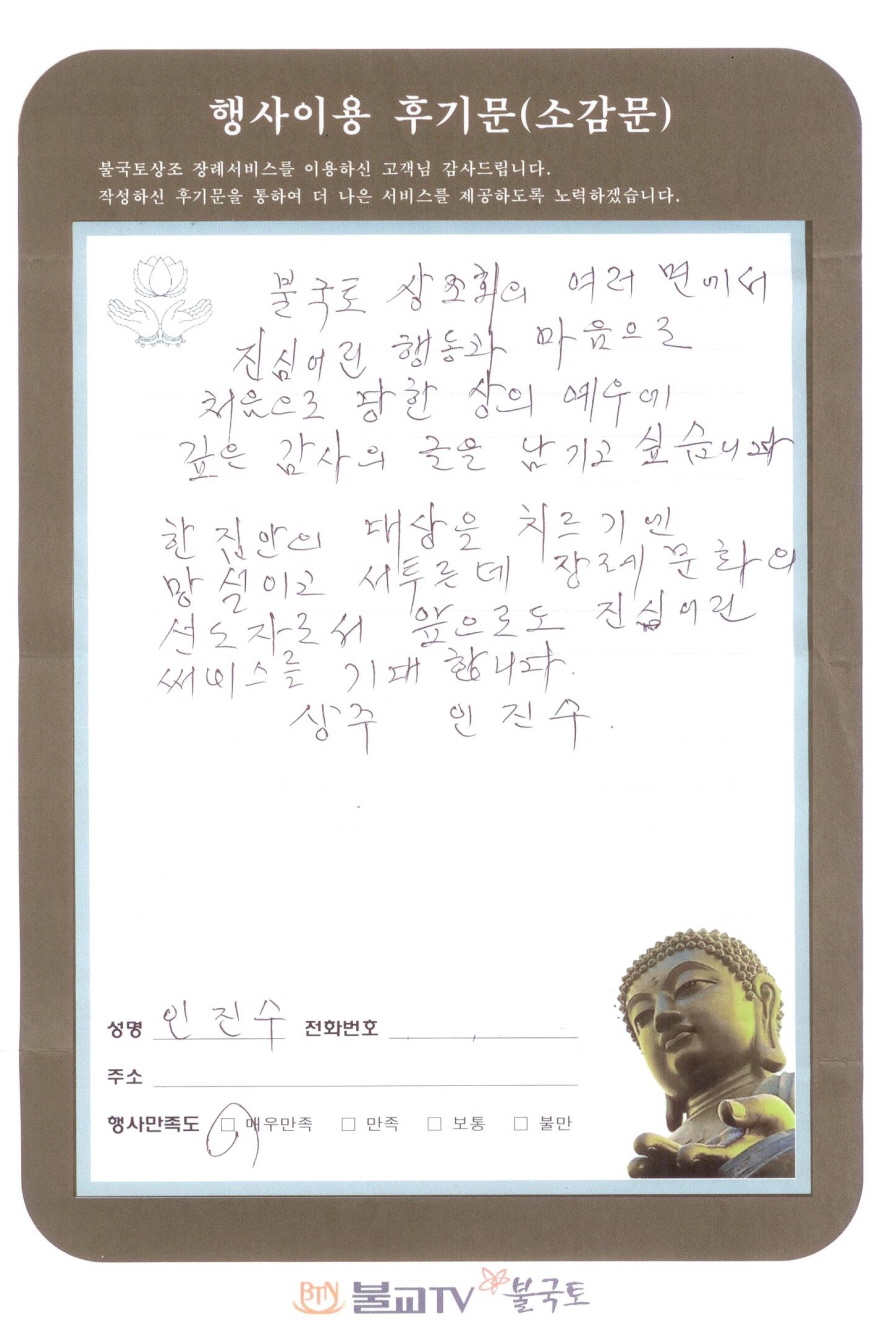 행사이용 후기문(소감문)
불국토상조 장례서비스를 이용하신 고객님 감사드립니다.
작성하신 후기문을 통하여 더 나은 서비스를 제공하도록 노력하겠습니다.
불국토 상조회의 여러 면에서
진심어린 행동과 마음으로
처음으로 당한 상의 예우에
깊은 감사의 글을 남기고 싶습니다
한 집안의 대상을 치르기엔
망설이고 서투른데 장례문화의
선도자로서 앞으로도 진심어린
써비스를 기대합니다.
상주 인진수.
성명 인진수 전화번호
주소
행사만족도 □ 매우만족 □ 만족 □ 보통 □ 불만
BTN 불교TV 불국토